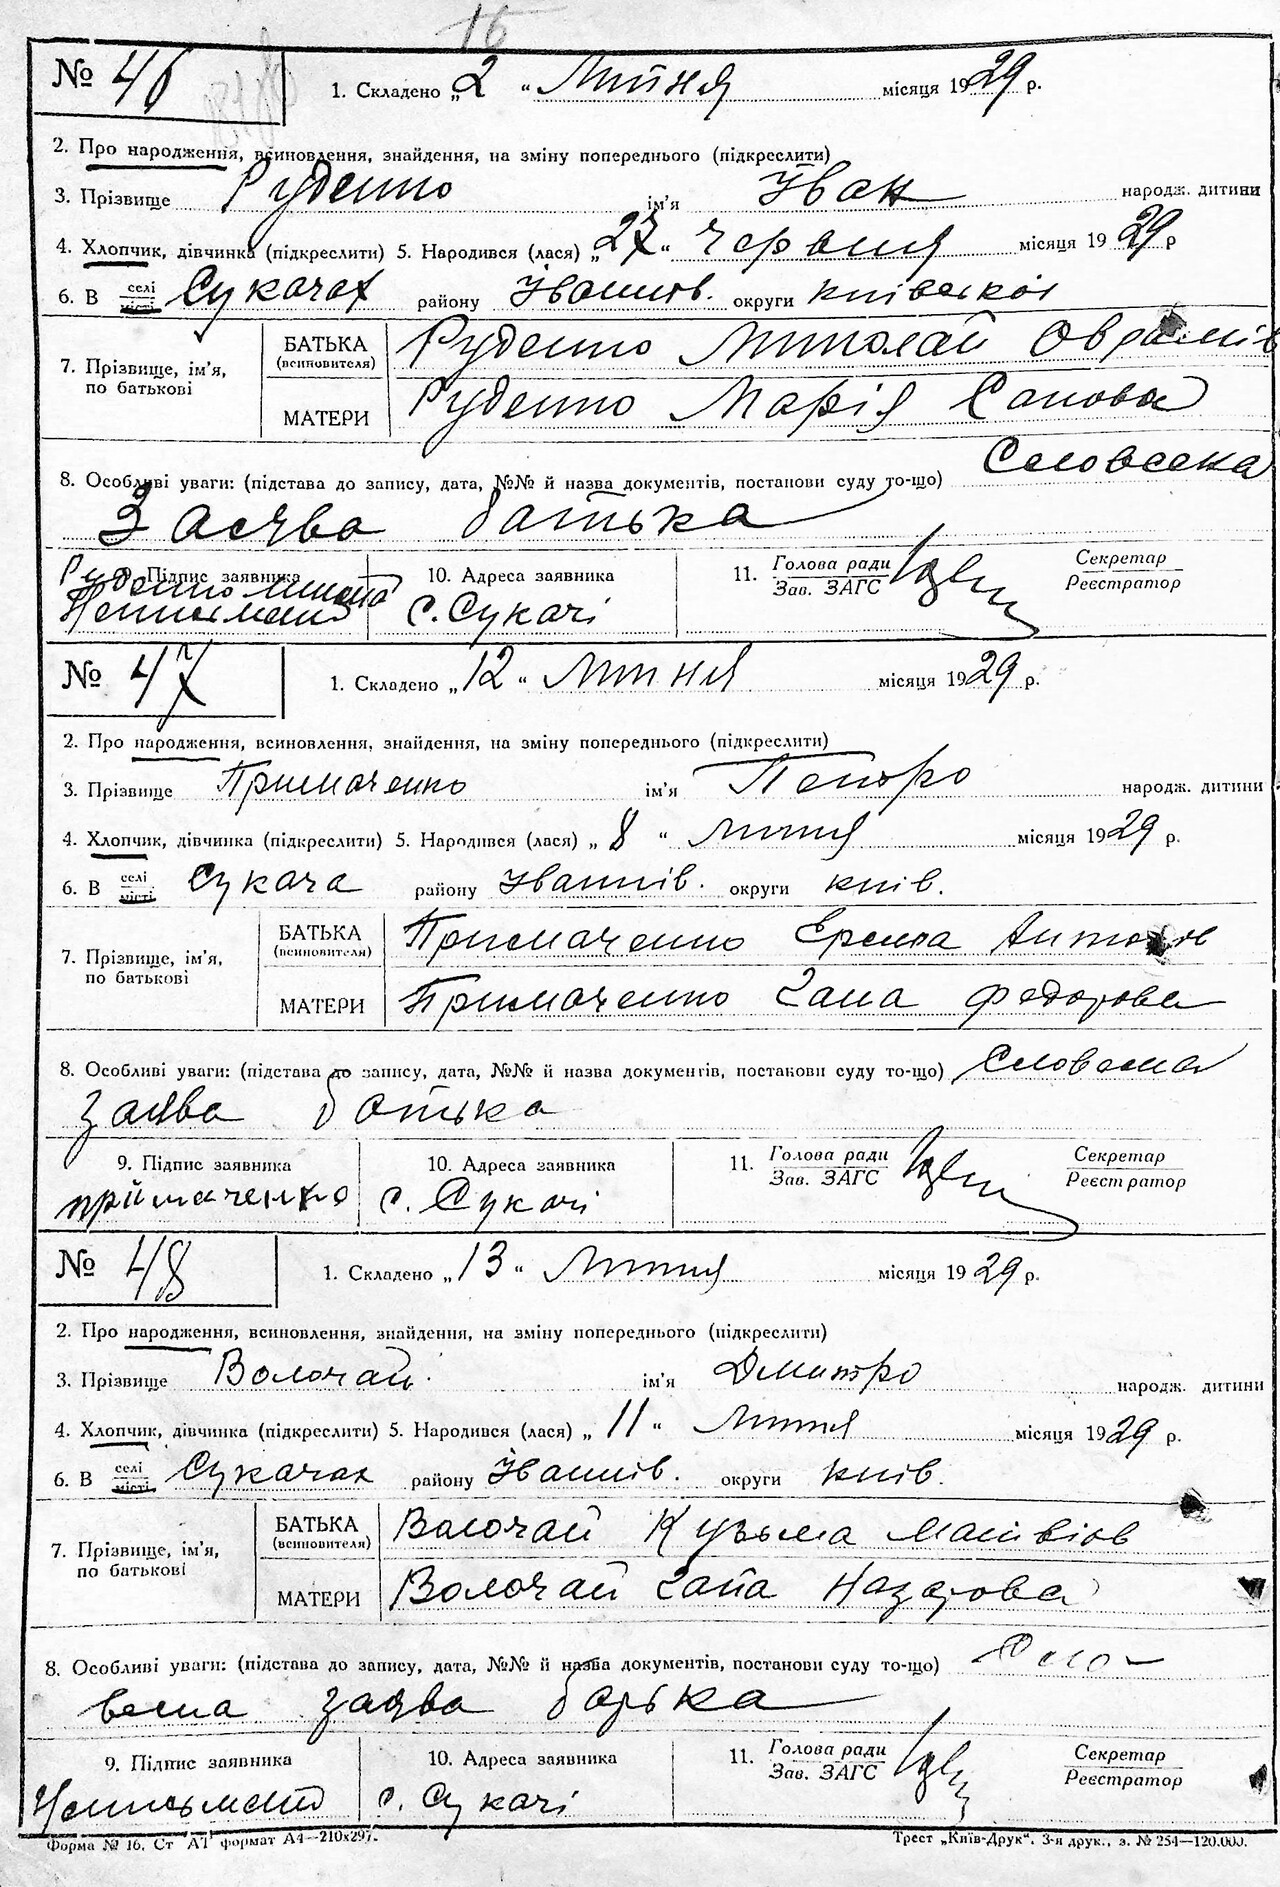 16
№ 46 1. Складено „2“ Липня місяця 1929 р.
2. Про народження, всиновлення, знайдення, на зміну попереднього (підкреслити)
3. Прізвище Руденко ім'я Іван народж. дитини
4. Хлопчик, дівчинка (підкреслити) 5. Народився (лася) „27“ червня місяця 1929 р
6. В селі місті Сукачах району Іванків. округи київської
7. Прізвище, ім'я, по батькові
БАТЬКА (всиновителя) Руденко Миколай Оврамів
МАТЕРИ Руденко Марія Савова
8. Особливі уваги: (підстава до запису, дата, №№ й назва документів, постанови суду то-що) Словесна
Заява батька
9. Підпис заявника 10. Адреса заявника 11. Голова ради Зав. ЗАГС Секретар Реєстратор
Руденко
Неписьмений с. Сукачі
№ 47 1. Складено „12“ Липня місяця 1929 р.
2. Про народження, всиновлення, знайдення, на зміну попереднього (підкреслити)
3. Прізвище Примаченко ім'я Петро народж. дитини
4. Хлопчик, дівчинка (підкреслити) 5. Народився (лася) „8“ Липня місяця 1929 р.
6. В селі місті Сукача району Іванків. округи київ.
7. Прізвище, ім'я, по батькові
БАТЬКА (всиновителя) Примаченко Ерема Антонов
МАТЕРИ Примаченко Гапа Федорова
8. Особливі уваги: (підстава до запису, дата, №№ й назва документів, постанови суду то-що) Словесна
заява батька
9. Підпис заявника 10. Адреса заявника 11. Голова ради Зав. ЗАГС Секретар Реєстратор
примаченко с. Сукачі
№ 48 1. Складено „13“ Липня місяця 1929 р.
2. Про народження, всиновлення, знайдення, на зміну попереднього (підкреслити)
3. Прізвище Волочай ім'я Дмитро народж. дитини
4. Хлопчик, дівчинка (підкреслити) 5. Народився (лася) „11“ Липня місяця 1929 р.
6. В селі місті Сукачах району Іванків. округи київ.
7. Прізвище, ім'я, по батькові
БАТЬКА (всиновителя) Волочай Кузьма Матвіїв
МАТЕРИ Волочай Гапа Назарова
8. Особливі уваги: (підстава до запису, дата, №№ й назва документів, постанови суду то-що) Сло-
весна заява батька
9. Підпис заявника 10. Адреса заявника 11. Голова ради Зав. ЗАГС Секретар Реєстратор
Неписьмений с. Сукачі
Форма № 16. Ст А1 формат А4—210x297. Трест „Київ-Друк“. 3-я друк., з. № 254—120.000.